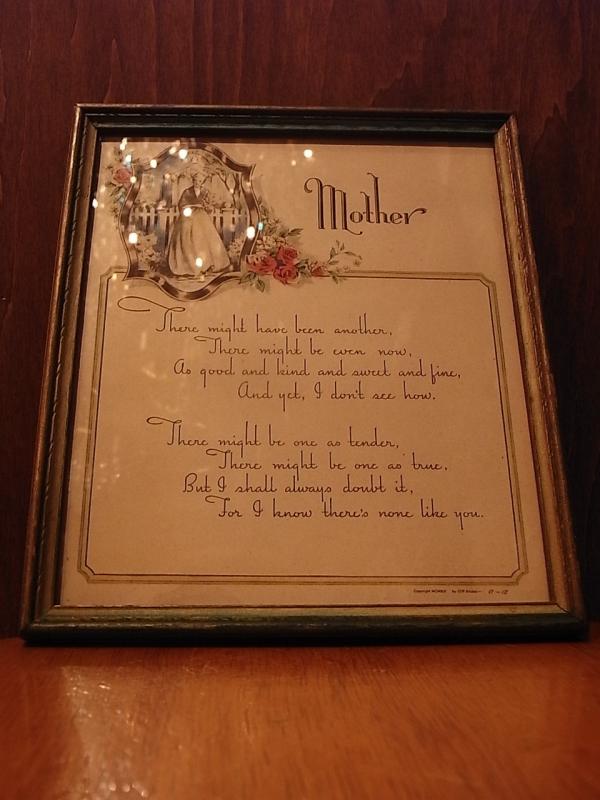 Mother
There might have been another,
There might be even now,
As good and kind and sweet and fine,
And yet, I don't see how.
There might be one as tender,
There might be one as true,
But I shall always doubt it,
For I know there's none like you.
Copyright